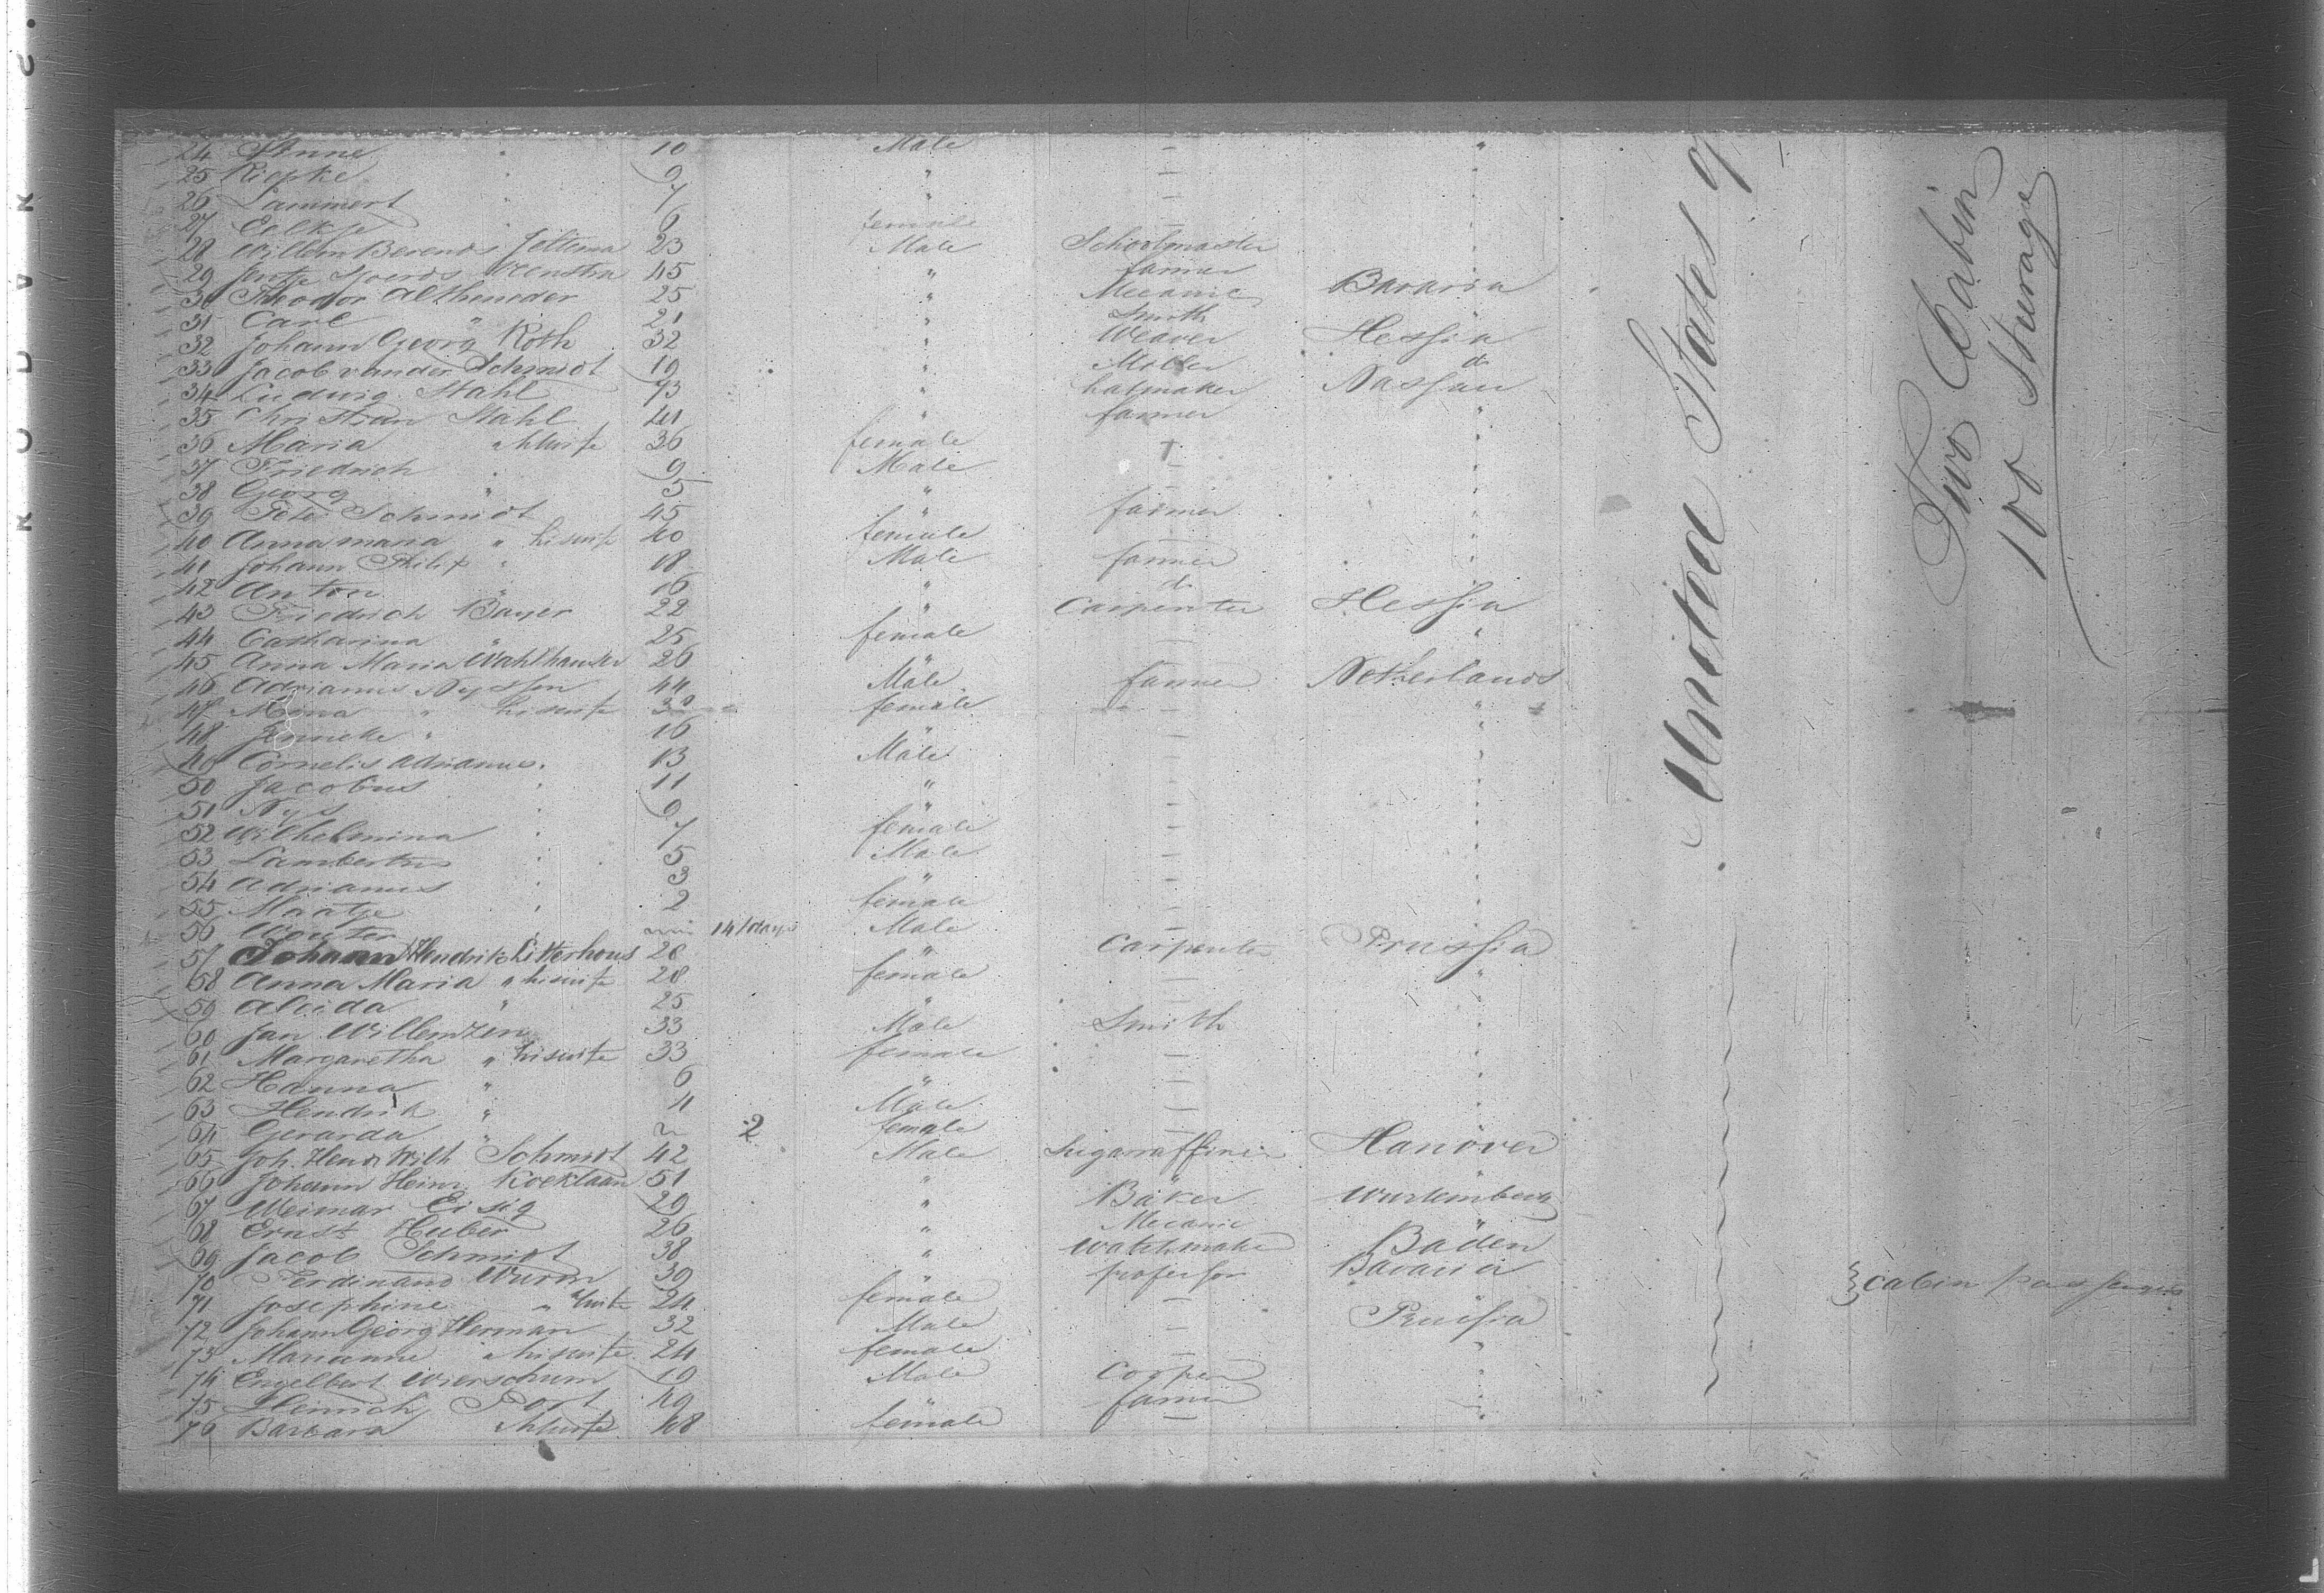 24 Anne " 10 Male — "
25 Riepke " 9 " — "
26 Lammert " 7 " — "
27 Eelkje " 6 female — "
28 Willem Berends Jeltema 23 Male Schoolmaster "
29 Jentje Sjoerds Veenstra 45 " farmer "
30 Theodor Altheneder 25 " Mecanic Bavaria
31 Carl " 21 " Smith "
32 Johann Georg Roth 32 " Weaver Hessia
33 Jacob vander Schmidt 19 " Moller do
34 Ludwig Stahl 73 " hatmaker Nassau
35 Christian Stahl 41 " farmer "
36 Maria " hiswife 36 female + "
37 Friedrich " 9 Male — "
38 Georg " 5 " — "
39 Peter Schmidt 45 " farmer "
40 Annamaria " hiswife 40 female — "
41 Johann Philip " 18 Male farmer "
42 Anton " 16 " do "
43 Friedrich Bayer 22 " Carpenter Hessia
44 Catharina " 25 female — "
45 Anna Maria Wahlhauser 26 "
46 Adrianus Nyssen 44 Male farmer Netherlands
47 Mina " hiswife 30 female — "
48 Jenneke " 16 " — "
49 Cornelis Adrianus " 13 Male — "
50 Jacobus " 11 " — "
51 Nys " 9 " — "
52 Wilhelmina " 7 female — "
53 Lambertus " 5 Male — "
54 Adrianus " 3 " — "
55 Maatje " 2 female — "
56 Wouter " 14/days Male — "
57 Johann Hendrik Litterhous 28 " Carpenter Prussia
58 Anna Maria " hiswife 28 female — "
59 Alida " 25 " — "
60 Jan Willemzen 33 Male Smith "
61 Margaretha " hiswife 33 female — "
62 Hanna " 6 " — "
63 Hendrik " 4 Male — "
64 Gerarda " 2 female — "
65 Joh. Hendr Wilh Schmidt 42 Male Sugarraffiner Hanover
66 Johann Heinr. Koeklaan 51 " "
67 Weimar Eisig 29 " Baker Wurtemberg
68 Ernst Huber 26 " Mecanic
69 Jacob Schmidt 38 " Watchmaker Baden
70 Ferdinand Wurm 39 " professor Bavaria
71 Josephine " hiswife 24 female — "
} cabin passengers
72 Johann Georg Herman 32 Male — Prussia
73 Marianne " hiswife 24 female — "
74 Engelbert Wierschum 19 Male Cooper "
75 Heinrich Port 49 " farmer "
76 Barbara " hiswife 48 female — "
United States of
Two Cabin
100 Steerage